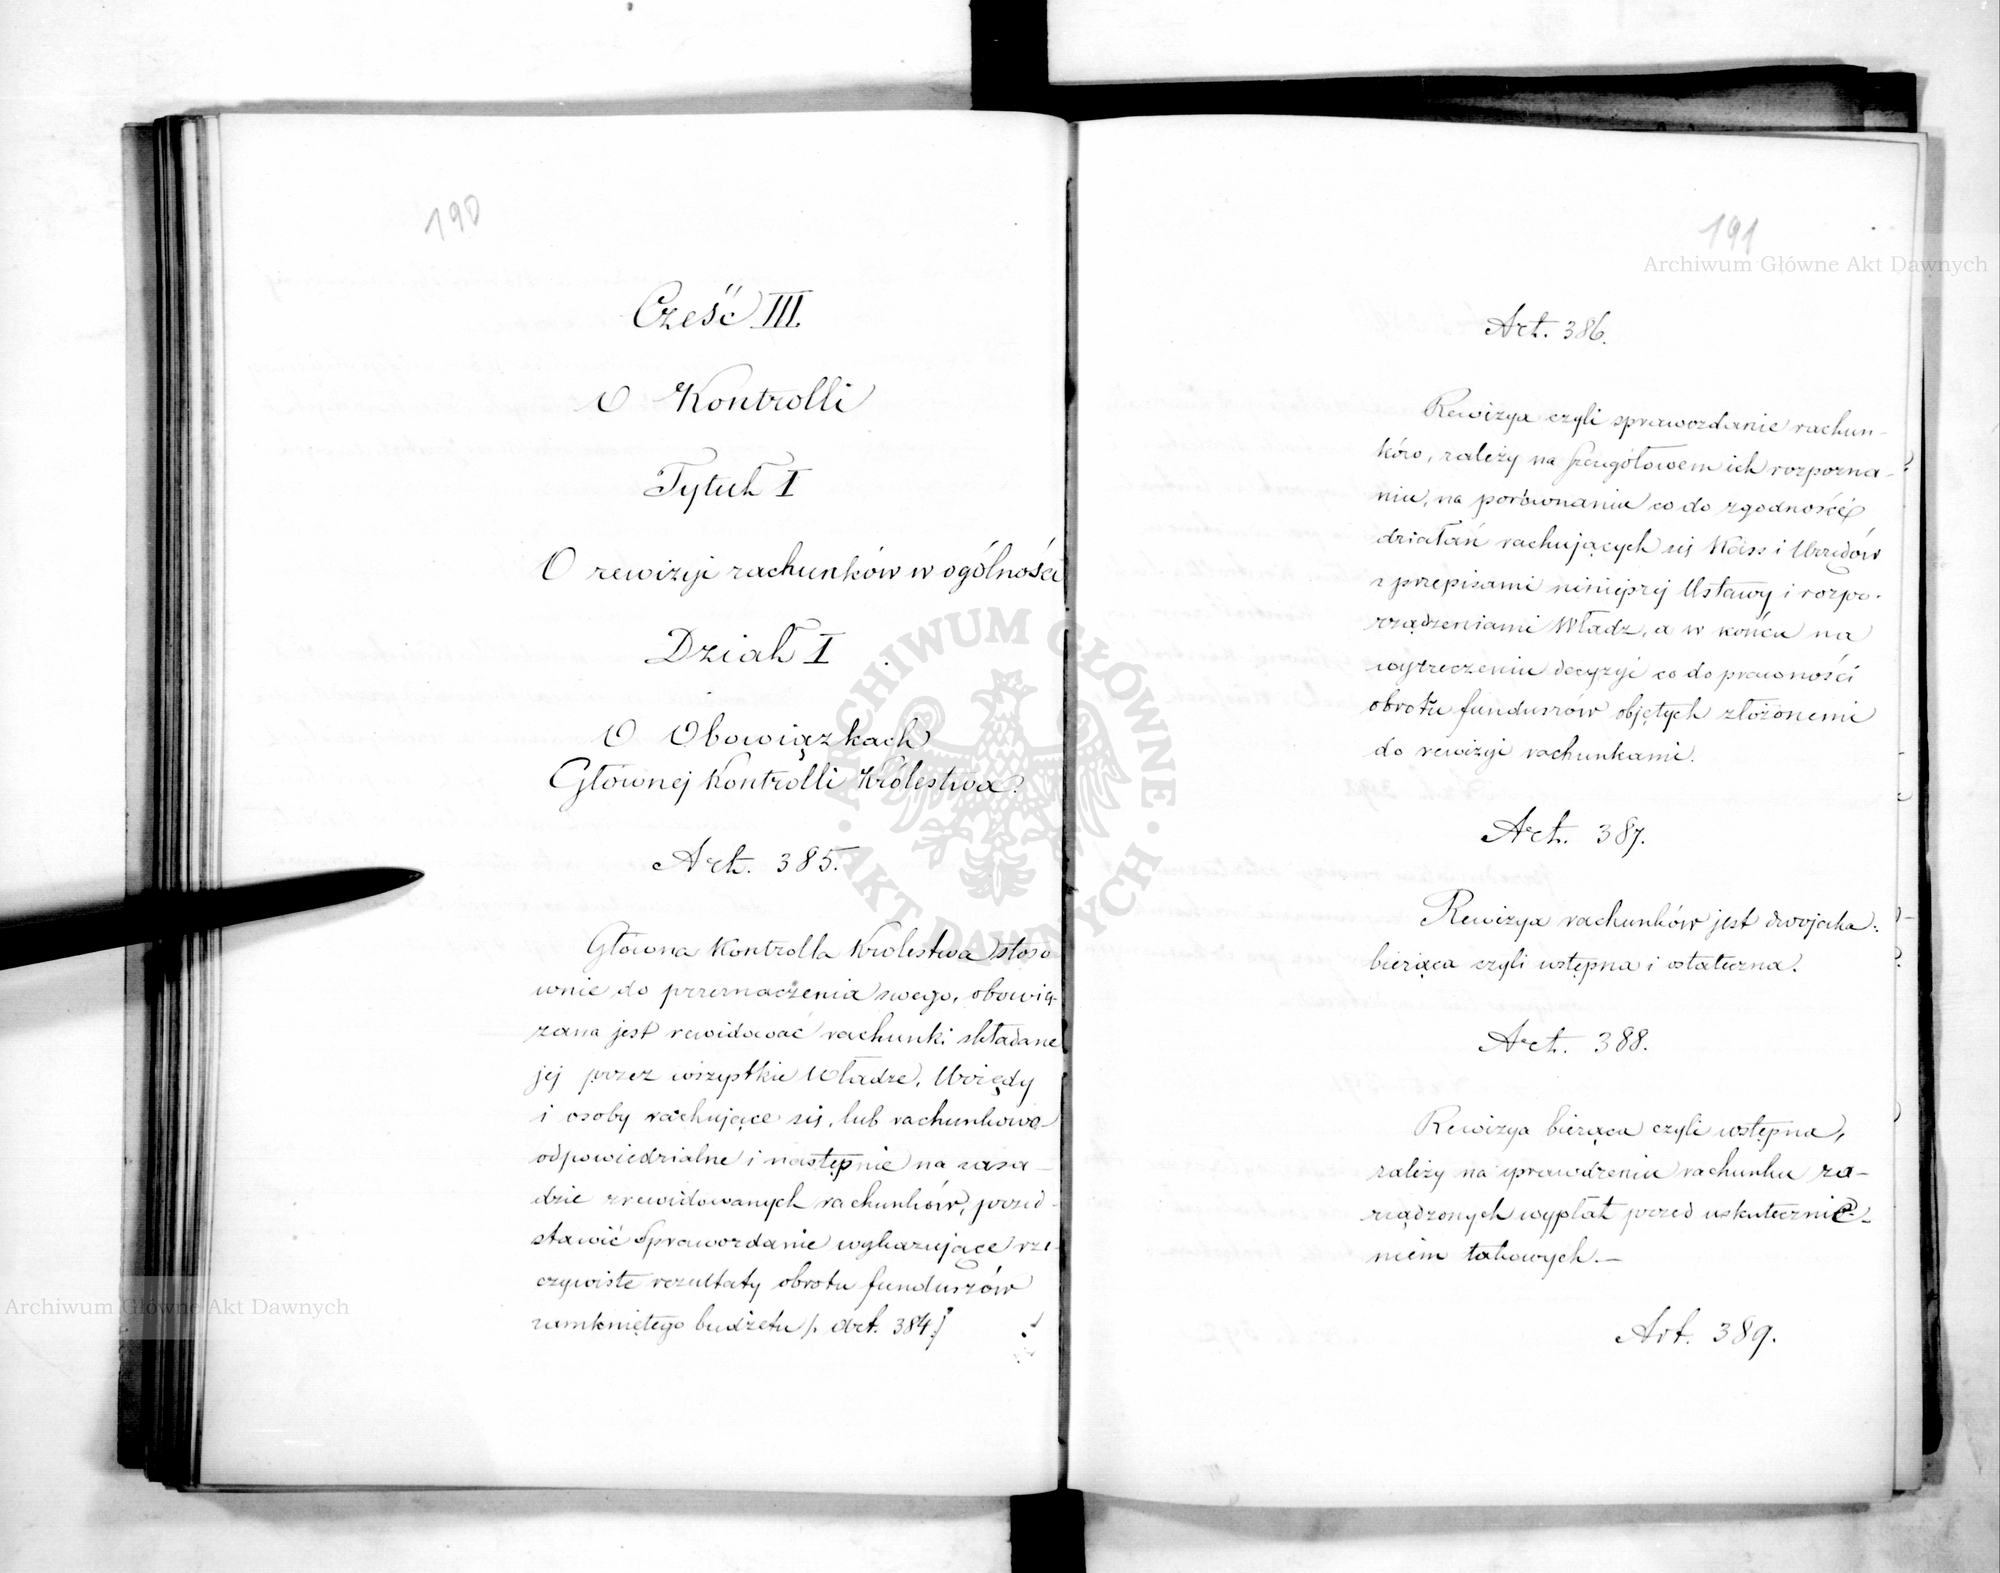 190
Cześć III.
O Kontrolli
Tytuł I
O rewizyi rachunków w ogólności
Dział I
O Obowiązkach
Głównej Kontrolli Królestwa.
Art. 385.
Główna Kontrolla Królestwa stoso
wnie do przeznaczenia swego, obowią-
zana jest rewidować rachunki składane
jej przez wszystkie Władze, Urzędy
i osoby rachujące się, lub rachunkowo
odpowiedzialne i następnie na zasa-
dzie zrewidowanych rachunków, przed-
stawić Sprawozdanie wykazujące rze-
czywiste rezultaty obrotu funduszów
zamkniętego budżetu /. Art. 384./
191
Art. 386.
Rewizya czyli sprawozdanie rachun-
ków, zależy na szczegółowem ich rozpozna-
niu, na porównaniu co do zgodności
działań rachujących się Kass i Urzędów
z przepisami niniejszej Ustawy i rozpo-
rządzeniami Władz, a w końcu na
wyrzeczeniu decyzyi co do prawności
obrotu funduszów objętych złożonemi
do rewizyi rachunkami.
Art. 387.
Rewizya rachunków jest dwojaka:
bierząca czyli wstępna i ostateczna.
Art. 388.
Rewizya bierząca czyli wstępna,
zależy na sprawdzeniu rachunku za-
rządzonych wypłat przed uskutecznie-
niem takowych.—
Art. 389.
Archiwum Główne Akt Dawnych
ARCHIWUM GŁÓWNE · AKT DAWNYCH ·
Archiwum Główne Akt Dawnych